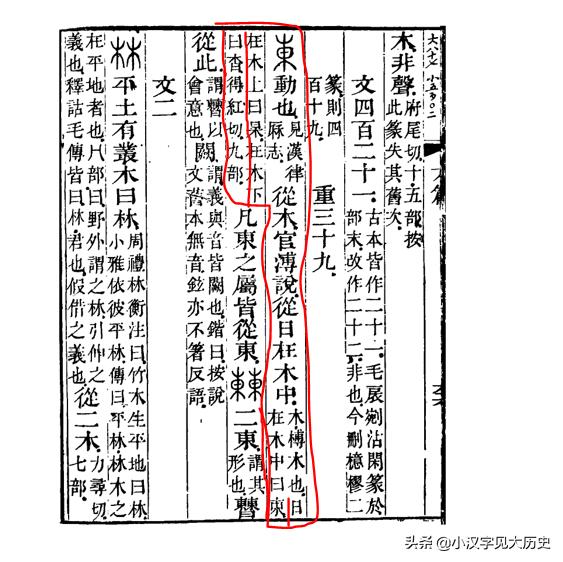 木非聲。府尾切十五部按此篆失其舊次。
文四百二十一。古本皆作二十一。毛扆剜沾閑篆於部末。改作二十二。非也。今刪檍樛二
篆則四百十九。 重三十九。
東 動也。見漢律厤志。從木。官溥說。從日在木中。木榑木也。日在木中曰東。
在木上曰杲。在木下曰杳。得紅切。九部。凡東之屬皆從東。
𣛧 二東。謂其形也。𣍘
從此。謂𣍘以會意也。闕。謂義與音皆闕也。鍇曰。按說文舊本無音。鉉亦不箸反語。
文二
林 平土有叢木曰林。周禮林衡注曰。竹木生平地曰林。小雅依彼平林。傳曰。平林。林木之
在平地者也。冂部曰。野外謂之林。引伸之義也。釋詁毛傳皆曰。林。君也。假借之義也。從二木。力尋切。七部。
头条 @小汉字见大历史